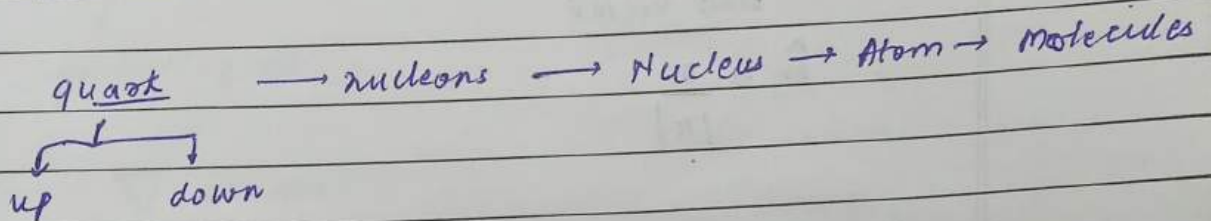 quark → nucleons → Nucleus → Atom → Molecules
up down